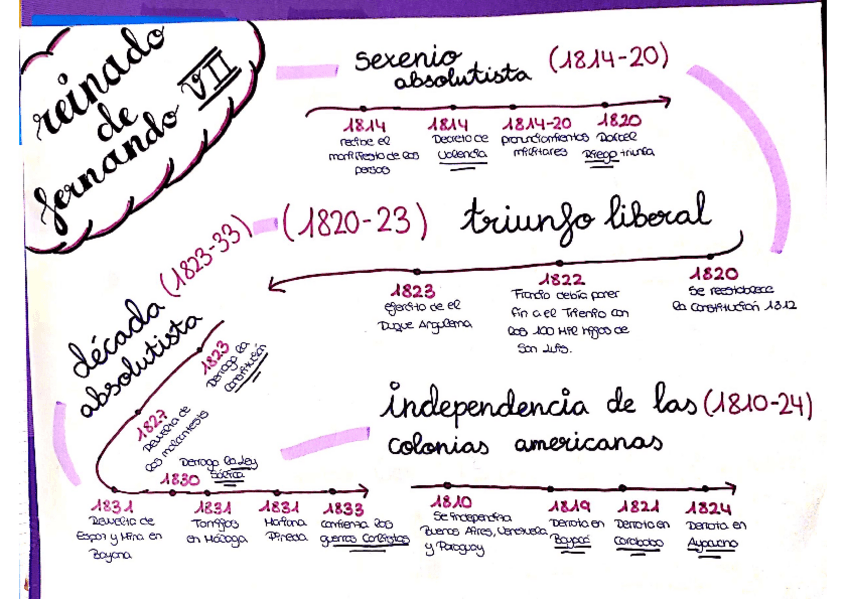 reinado
de
fernando VII
sexenio
absolutista (1814-20)
1814
recibe el
manifiesto de los
persas
1814
Decreto de
Valencia
1814-20
pronunciamientos
militares
1820
Riego triunfa
(1820-23) triunfo liberal
1820
Se reestablece
la Constitución 1812
1822
Francia debía poner
fin a el Trienio con
los 100 Mil Hijos de
San Luis.
1823
ejército de el
Duque Angulema
década (1823-33)
absolutista
1823
Deroga la
constitución
1827
Revuelta de
los malcontests
1830
Deroga la Ley
Sálica
1831
Revuelta de
Espoz y Mina en
Bayona
1831
Torrijos
en Málaga
1831
Mariana
Pineda
1833
comienza las
guerras Carlistas
independencia de las (1810-24)
colonias americanas
1810
Se independiza
Buenos Aires, Venezuela,
y Paraguay
1819
Derrota en
Boyacá
1821
Derrota en
Carabobo
1824
Derrota en
Ayacucho